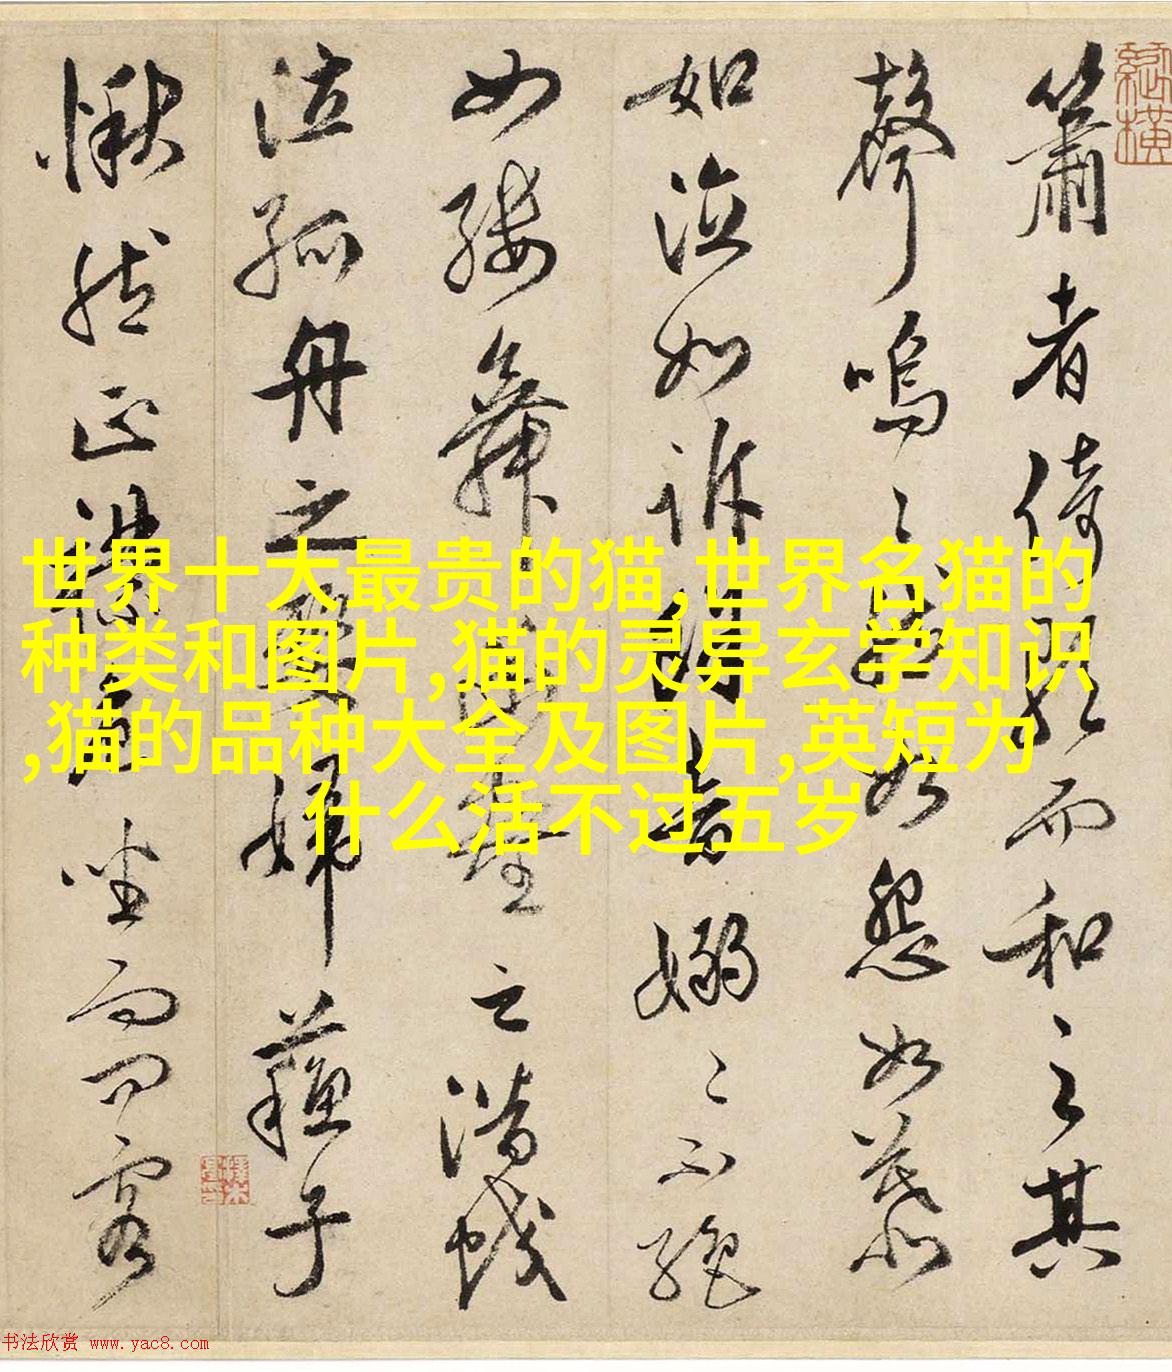 簫者倚歌而和之其
聲嗚〻然如怨如慕
如泣如訴餘音嫋〻不絕
如縷舞幽壑之潛蛟
泣孤舟之嫠婦蘇子
愀然正襟危坐而問客
世界十大最贵的猫,世界名猫的
种类和图片,猫的灵异玄学知识
,猫的品种大全及图片,英短为
什么活不过五岁
书法欣赏 www.yac8.com